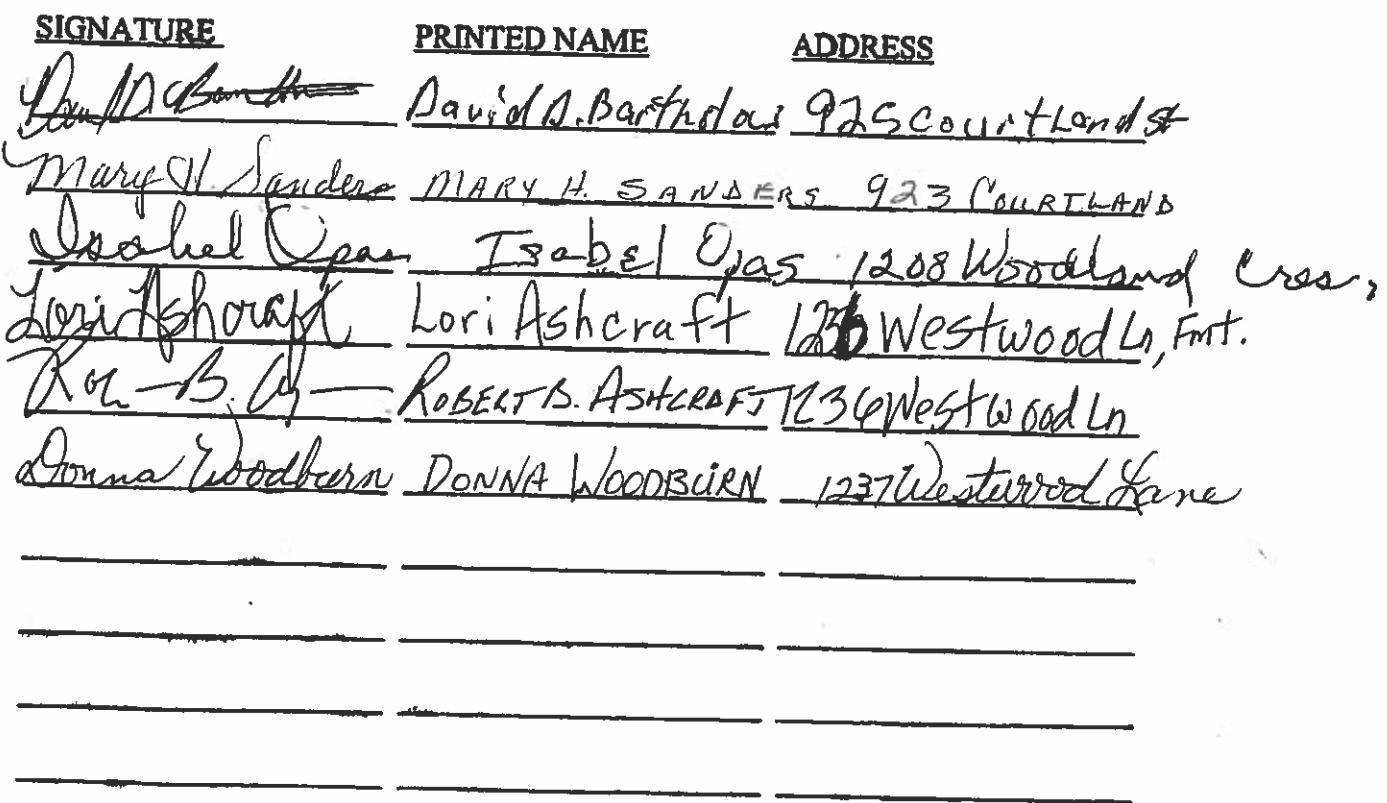 SIGNATURE PRINTED NAME ADDRESS
David D. 925 Courtland st
Mary H. Sanders MARY H. SANDERS 923 COURTLAND
Isabel Ojas Isabel Ojas 1208 Woodland Cres,
Lori Ashcraft Lori Ashcraft 1236 Westwood Ln, Fmt.
ROBERT B. ASHCRAFT 1236 Westwood Ln
Donna Woodburn DONNA WOODBURN 1237 Westwood Lane